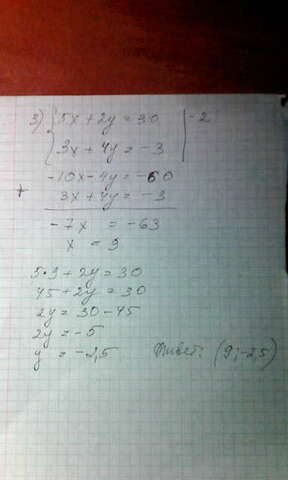 3) { 5x + 2y = 30 | -2
{ 3x + 4y = -3 |
-10x - 4y = -60
+ 3x + 4y = -3
-7x = -63
x = 9
5·9 + 2y = 30
45 + 2y = 30
2y = 30 - 45
2y = -5
y = -2,5 Ответ: (9; -2,5)